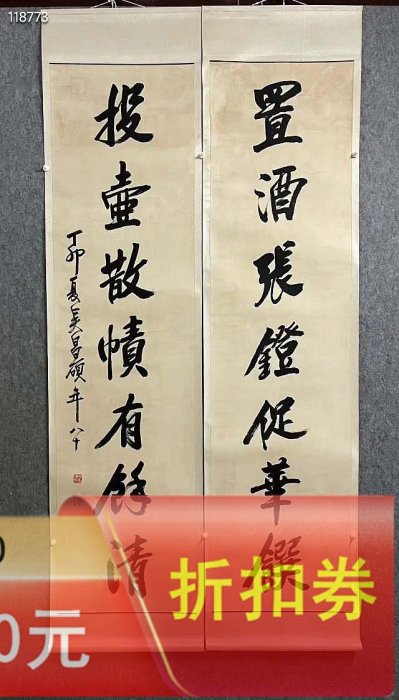 118773
置酒張鐙促華饌
投壺散帙有餘清
丁卯夏吳昌碩年八十
折扣券
0
0元